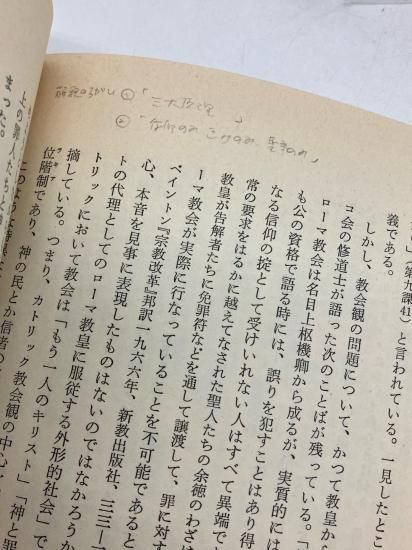 ①「三大原理」
②「信仰のみ 恵みのみ 聖書のみ」
」第九課41）と言われている。一見したとこ
義である。
しかし、教会観の問題について、かつて教皇か
コ会の修道士が語った次のことばが残っている。「
ローマ教会は名目上枢機卿から成るが、実質的には
も公の資格で語る時には、誤りを犯すことはあり得
なる信仰の掟として受けいれない人はすべて異端で
常の要求をはるかに越えてなされた聖人たちの余徳のわざは
教皇が告解者たちに免罪符などを通して譲渡して、罪に対す
ーマ教会が実際に行なっていることを不可能であると
ベイントン『宗教改革』邦訳一九六六年、新教出版社、三三―
心、本音を見事に表現したものはないのではなかろうか
トの代理としてのローマ教皇に服従する外形的社会」で
トリックにおいて教会は「もう一人のキリスト」「神と罪
摘している。つまり、カトリック教会観の中心
位階制であり、神の民とか信者の
このような
上の罪人たちと
まった。